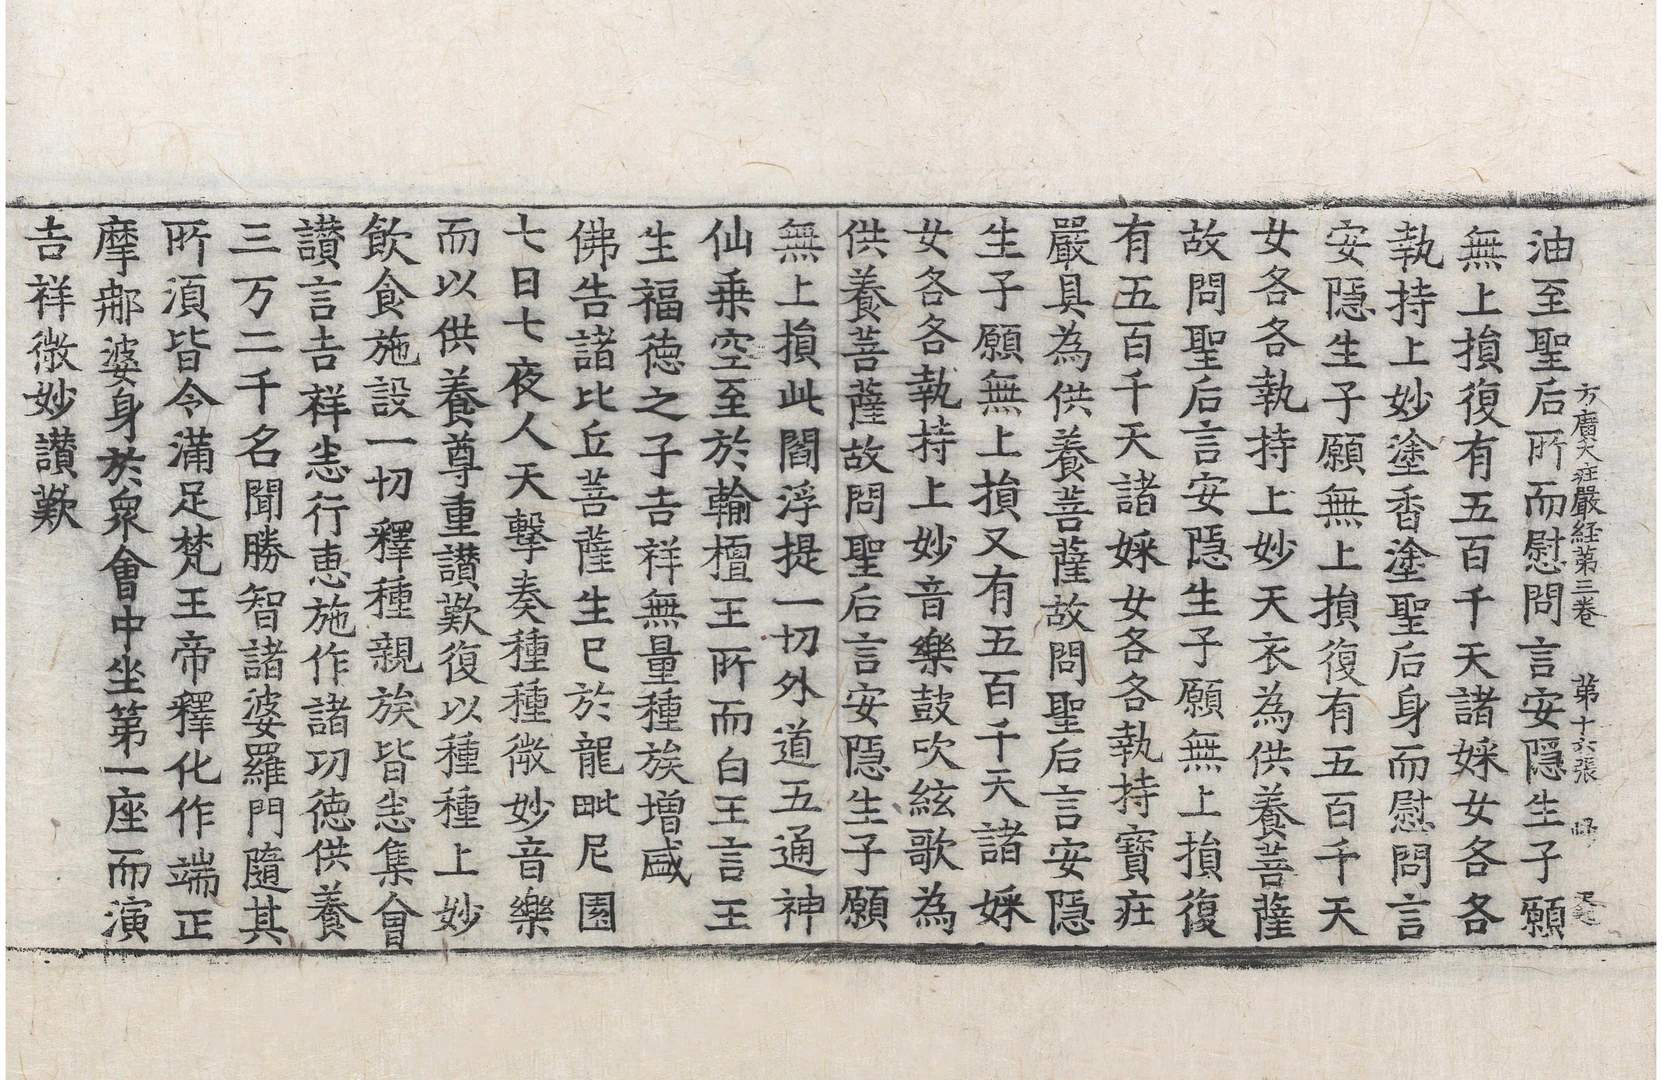 方廣大庄嚴経第三卷 第十六張
油至聖后所而慰問言安隱生子願
無上損復有五百千天諸婇女各各
執持上妙塗香塗聖后身而慰問言
安隱生子願無上損復有五百千天
女各各執持上妙天衣為供養菩薩
故問聖后言安隱生子願無上損復
有五百千天諸婇女各各執持寶庄
嚴具為供養菩薩故問聖后言安隱
生子願無上損又有五百千天諸婇
女各各執持上妙音樂鼓吹絃歌為
供養菩薩故問聖后言安隱生子願
無上損此閻浮提一切外道五通神
仙乗空至於輸檀王所而白王言王
生福徳之子吉祥無量種族增盛
佛告諸比丘菩薩生已於龍毗尼園
七日七夜人天擊奏種種微妙音樂
而以供養尊重讃歎復以種種上妙
飲食施設一切釋種親族皆悉集會
讃言吉祥悉行恵施作諸功徳供養
三万二千名聞勝智諸婆羅門隨其
所湏皆令滿足梵王帝釋化作端正
摩那婆身於衆會中坐第一座而演
吉祥微妙讃歎